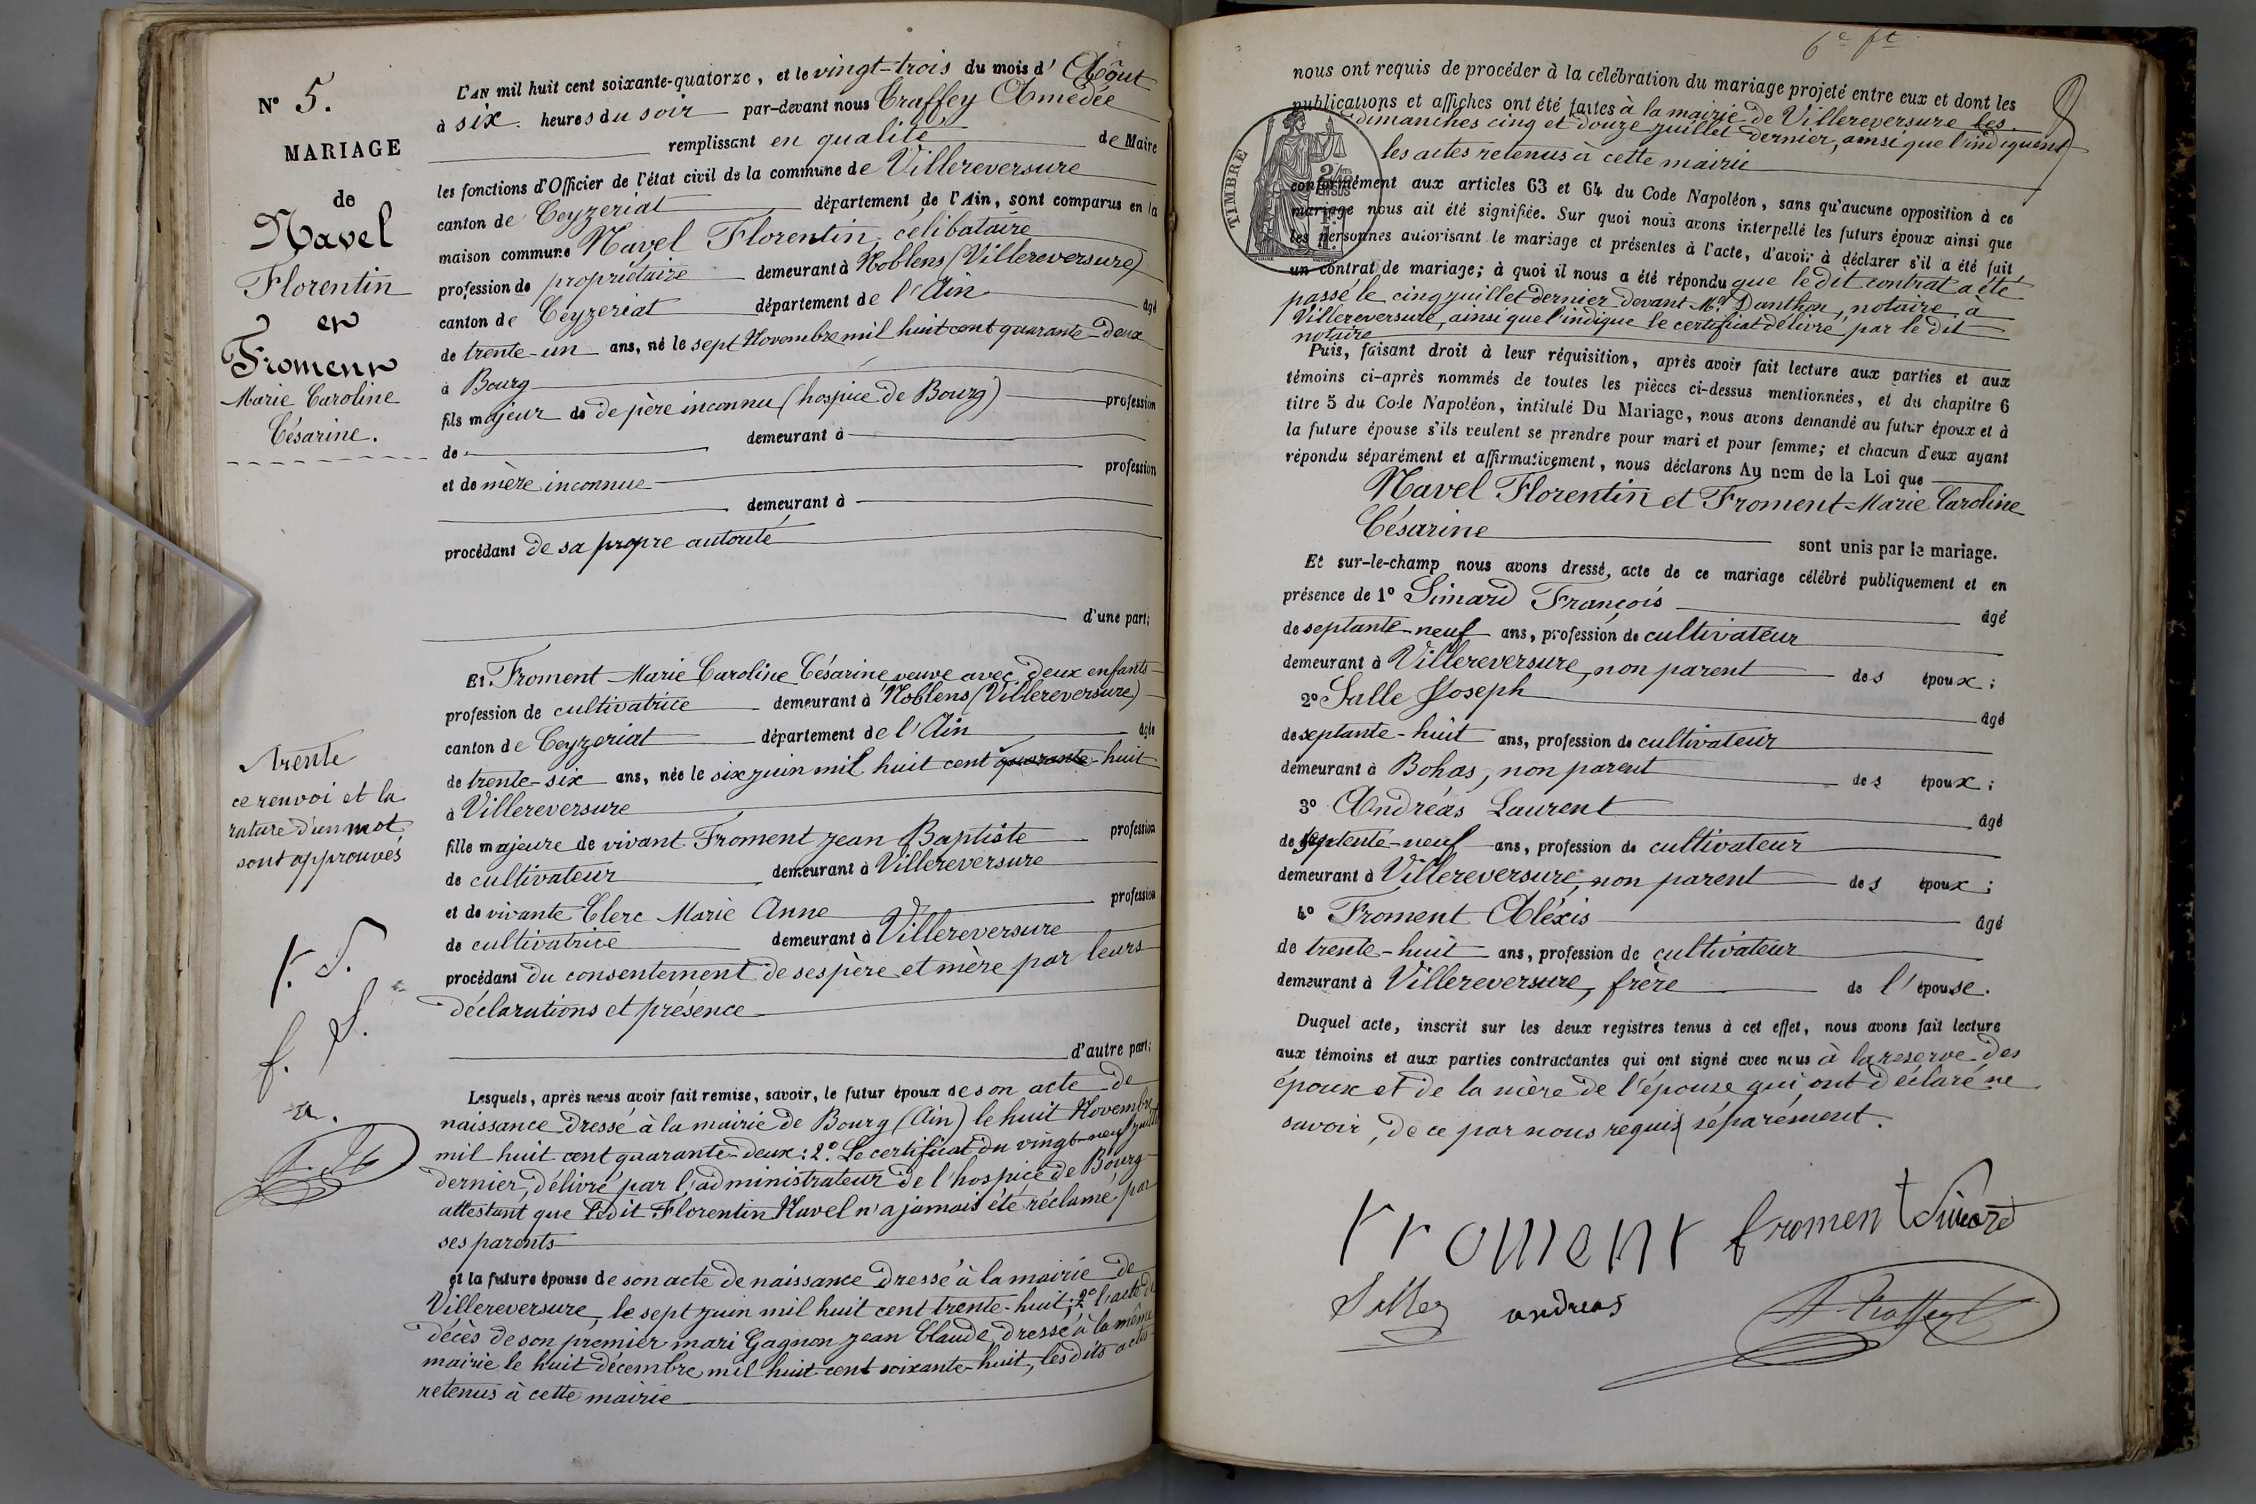 N° 5.
MARIAGE
de
Navel
Florentin
et
Froment
Marie Caroline
Césarine.
L'AN mil huit cent soixante-quatorze, et le vingt-trois du mois d' Aôut
à six heures du soir par-devant nous Traffey Amédée
remplissant en qualité de Maire
les fonctions d'Officier de l'état civil de la commune de Villereversure
canton de Ceyzeriat département de l'Ain, sont comparus en la
maison commune Navel Florentin, célibataire
profession de propriétaire demeurant à Noblens (Villereversure)
canton de Ceyzeriat département de l'Ain âgé
de trente-un ans, né le sept Novembre mil huit cent quarante-deux
à Bourg
fils majeur de de père inconnu (hospice de Bourg) profession
de demeurant à
et de mère inconnue profession
demeurant à
procédant de sa propre autorité
d'une part;
Et Froment Marie Caroline Césarine veuve avec deux enfants
profession de cultivatrice demeurant à Noblens (Villereversure)
canton de Ceyzeriat département de l'Ain âgée
de trente-six ans, née le six juin mil huit cent quarante-huit
à Villereversure
fille majeure de vivant Froment jean Baptiste profession
de cultivateur demeurant à Villereversure
et de vivante Clerc Marie Anne profession
de cultivatrice demeurant à Villereversure
procédant du consentement de ses père et mère par leurs
déclarations et présence
d'autre part;
Trente
ce renvoi et la
rature d'un mot
sont approuvés
f. S.
f. S.
a.
Lesquels, après nous avoir fait remise, savoir, le futur époux de son acte de
naissance dressé à la mairie de Bourg (Ain) le huit Novembre
mil huit cent quarante-deux: 2° Le certificat du vingt-neuf juillet
dernier, délivré par l'administrateur de l'hospice de Bourg
attestant que ledit Florentin Navel n'a jamais été réclamé par
ses parents
et la future épouse de son acte de naissance dressé à la mairie de
Villereversure, le sept juin mil huit cent trente-huit; 2° l'acte de
décès de son premier mari Gagnon jean Claude, dressé à la même
mairie le huit décembre mil huit cent soixante-huit, les dits actes
retenus à cette mairie
6e ft
nous ont requis de procéder à la célébration du mariage projeté entre eux et dont les
publications et affiches ont été faites à la mairie de Villereversure les
dimanches cinq et douze juillet dernier, ainsi que l'indiquent
les actes retenus à cette mairie
TIMBRE
conformément aux articles 63 et 64 du Code Napoléon, sans qu'aucune opposition à ce
mariage nous ait été signifiée. Sur quoi nous avons interpellé les futurs époux ainsi que
les personnes autorisant le mariage et présentes à l'acte, d'avoir à déclarer s'il a été fait
un contrat de mariage; à quoi il nous a été répondu que le dit contrat a été
passé le cinq juillet dernier devant Me Danthon, notaire à
Villereversure, ainsi que l'indique le certificat délivré par le dit
notaire
Puis, faisant droit à leur réquisition, après avoir fait lecture aux parties et aux
témoins ci-après nommés de toutes les pièces ci-dessus mentionnées, et du chapitre 6
titre 5 du Code Napoléon, intitulé Du Mariage, nous avons demandé au futur époux et à
la future épouse s'ils veulent se prendre pour mari et pour femme; et chacun d'eux ayant
répondu séparément et affirmativement, nous déclarons Au nom de la Loi que
Navel Florentin et Froment Marie Caroline
Césarine
sont unis par le mariage.
Et sur-le-champ nous avons dressé, acte de ce mariage célébré publiquement et en
présence de 1° Simard François âgé
de septante-neuf ans, profession de cultivateur
demeurant à Villereversure, non parent des époux;
2° Salle Joseph âgé
de septante-huit ans, profession de cultivateur
demeurant à Bohas, non parent des époux;
3° Andréas Laurent âgé
de septente-neuf ans, profession de cultivateur
demeurant à Villereversure, non parent des époux;
4° Froment Aléxis âgé
de trente-huit ans, profession de cultivateur
demeurant à Villereversure, frère de l'épouse.
Duquel acte, inscrit sur les deux registres tenus à cet effet, nous avons fait lecture
aux témoins et aux parties contractantes qui ont signé avec nous à la reserve des
époux et de la mère de l'épouse qui ont déclaré ne
savoir, de ce par nous requis séparément.
froment froment Simard
Salley andreas A Traffey